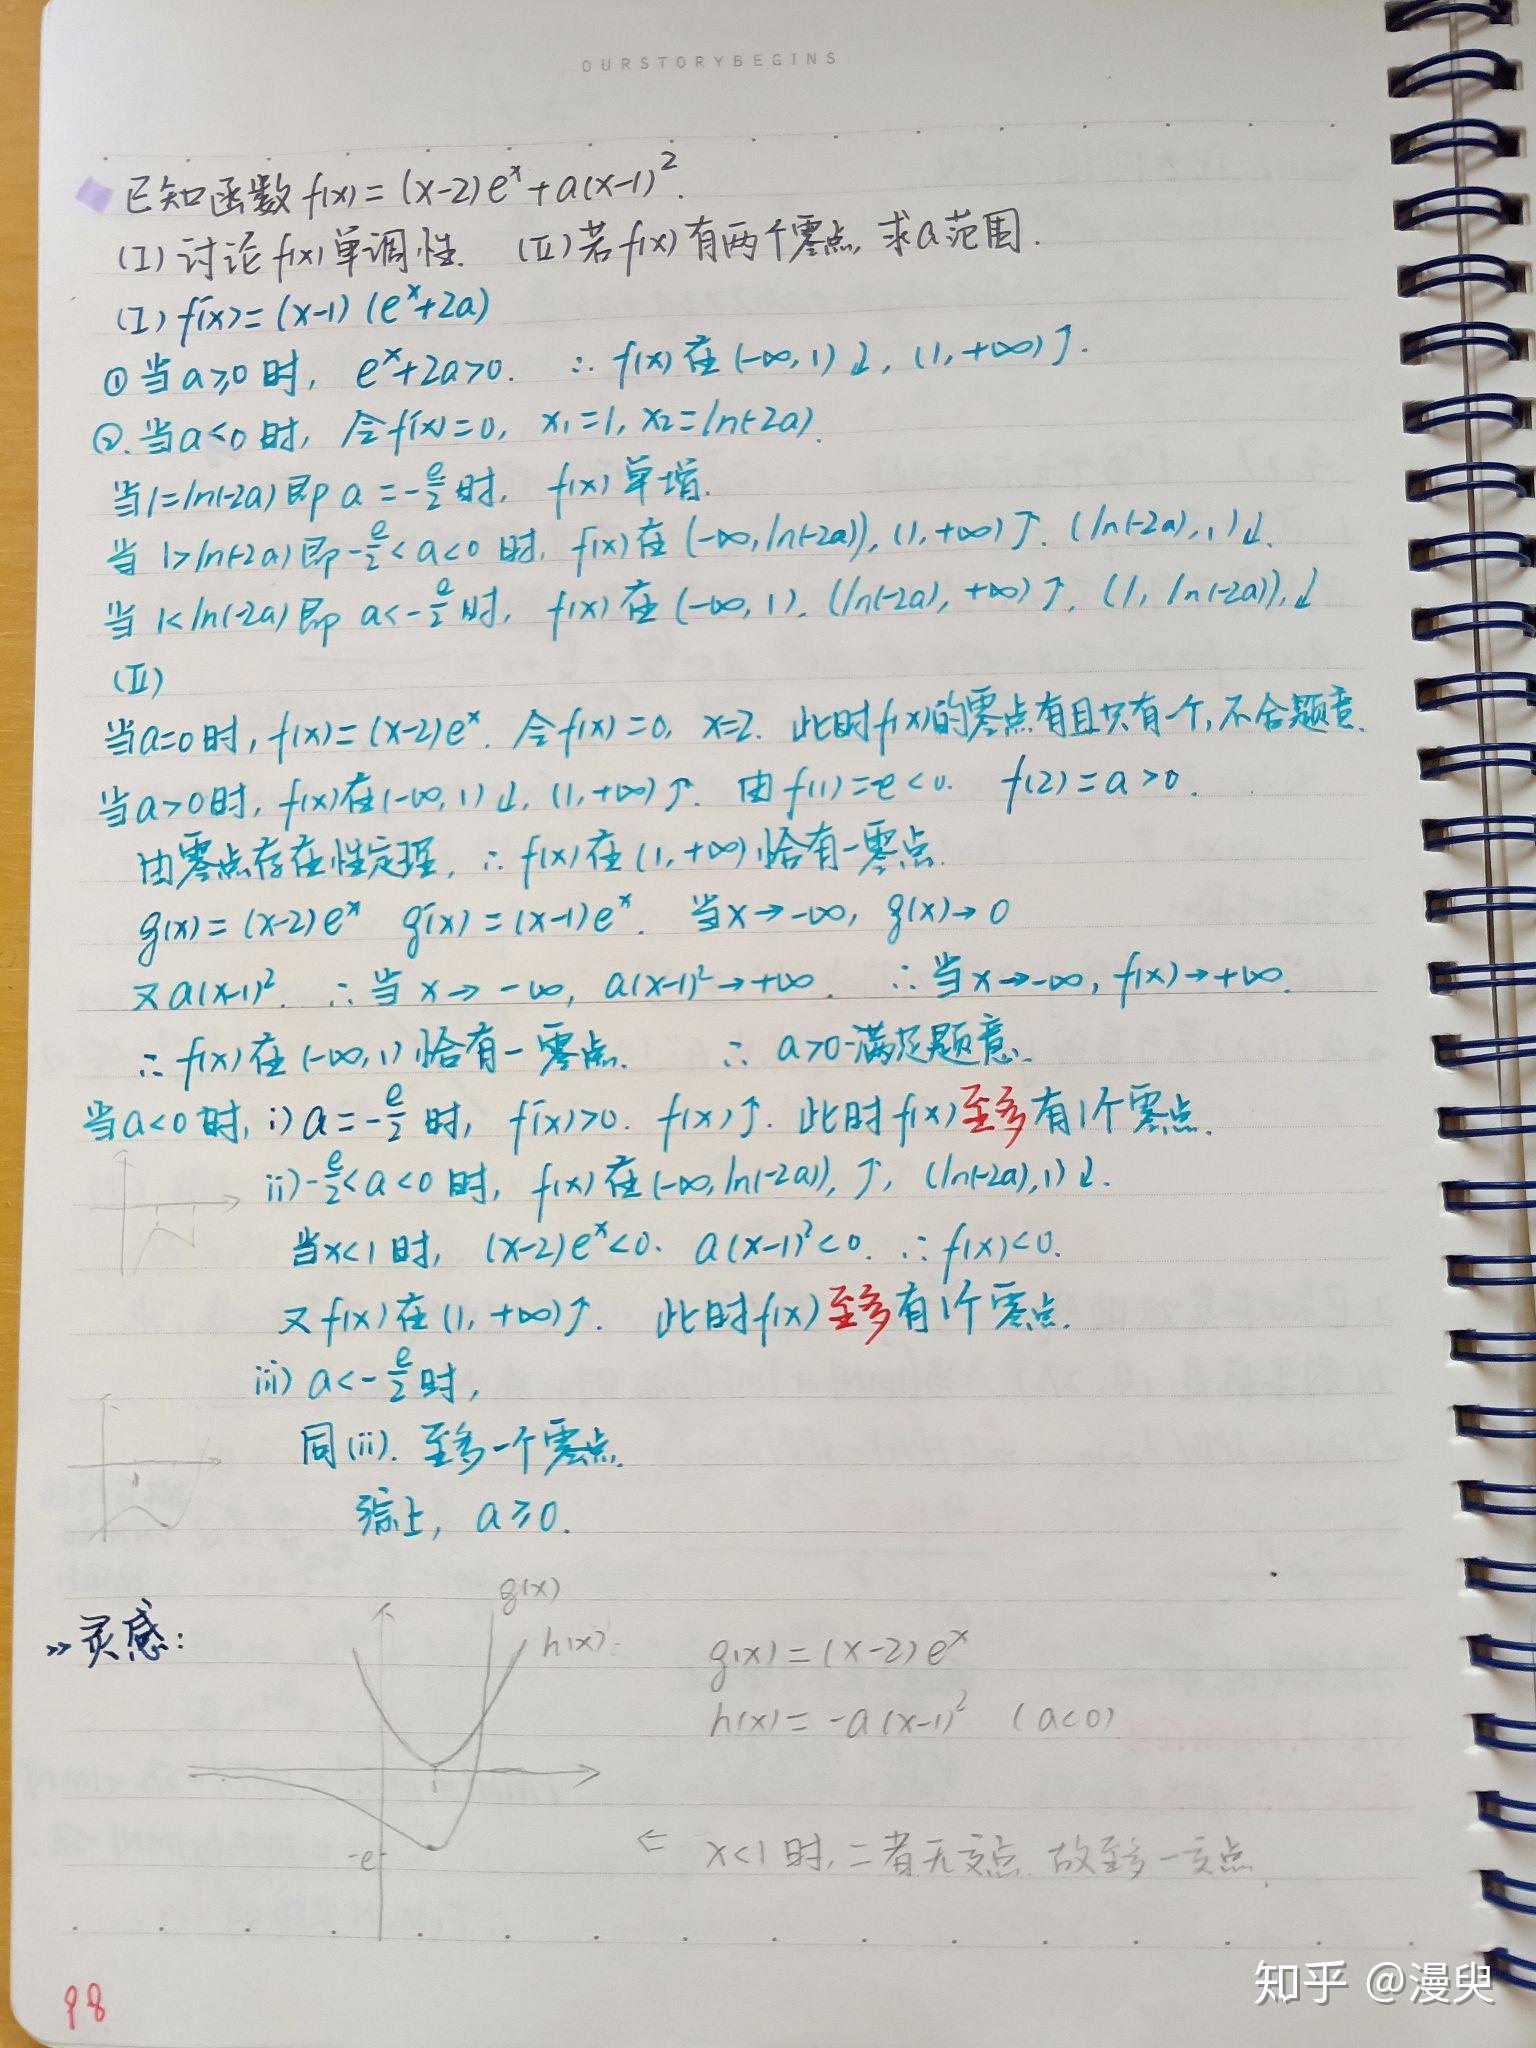 OURSTORYBEGINS
已知函数 f(x) = (x-2)e^x + a(x-1)^2.
(I) 讨论 f(x) 单调性. (II) 若 f(x) 有两个零点, 求 a 范围.
(I) f'(x) = (x-1)(e^x+2a)
① 当 a≥0 时, e^x+2a>0. ∴ f(x) 在 (-∞,1)↓, (1,+∞)↑.
②. 当 a<0 时, 令 f'(x)=0, x₁=1, x₂=ln(-2a).
当 1=ln(-2a) 即 a=-e/2 时, f(x) 单增.
当 1>ln(-2a) 即 -e/2<a<0 时, f(x) 在 (-∞,ln(-2a)), (1,+∞)↑. (ln(-2a),1)↓.
当 1<ln(-2a) 即 a<-e/2 时, f(x) 在 (-∞,1). (ln(-2a),+∞)↑. (1,ln(-2a)),↓
(II)
当 a=0 时, f(x)=(x-2)e^x. 令 f(x)=0, x=2. 此时 f(x) 的零点有且只有一个, 不合题意.
当 a>0 时, f(x) 在 (-∞,1)↓, (1,+∞)↑. 由 f(1)=-e<0. f(2)=a>0.
由零点存在性定理, ∴ f(x) 在 (1,+∞) 恰有一零点.
g(x)=(x-2)e^x g'(x)=(x-1)e^x. 当 x→-∞, g(x)→0
又 a(x-1)^2. ∴ 当 x→-∞, a(x-1)^2→+∞. ∴ 当 x→-∞, f(x)→+∞.
∴ f(x) 在 (-∞,1) 恰有一零点. ∴ a>0 满足题意.
当 a<0 时, i) a=-e/2 时, f'(x)>0. f(x)↑. 此时 f(x) 至多有1个零点.
ii) -e/2<a<0 时, f(x) 在 (-∞,ln(-2a)),↑, (ln(-2a),1)↓.
当 x<1 时, (x-2)e^x<0. a(x-1)^2<0. ∴ f(x)<0.
又 f(x) 在 (1,+∞)↑. 此时 f(x) 至多有1个零点.
iii) a<-e/2 时,
同(ii). 至多一个零点.
综上, a≥0.
» 灵感:
g(x)
h(x)
g(x)=(x-2)e^x
h(x)=-a(x-1)^2 (a<0)
1
-e
← x<1 时, 二者无交点. 故至多一交点.
98
知乎 @漫臾